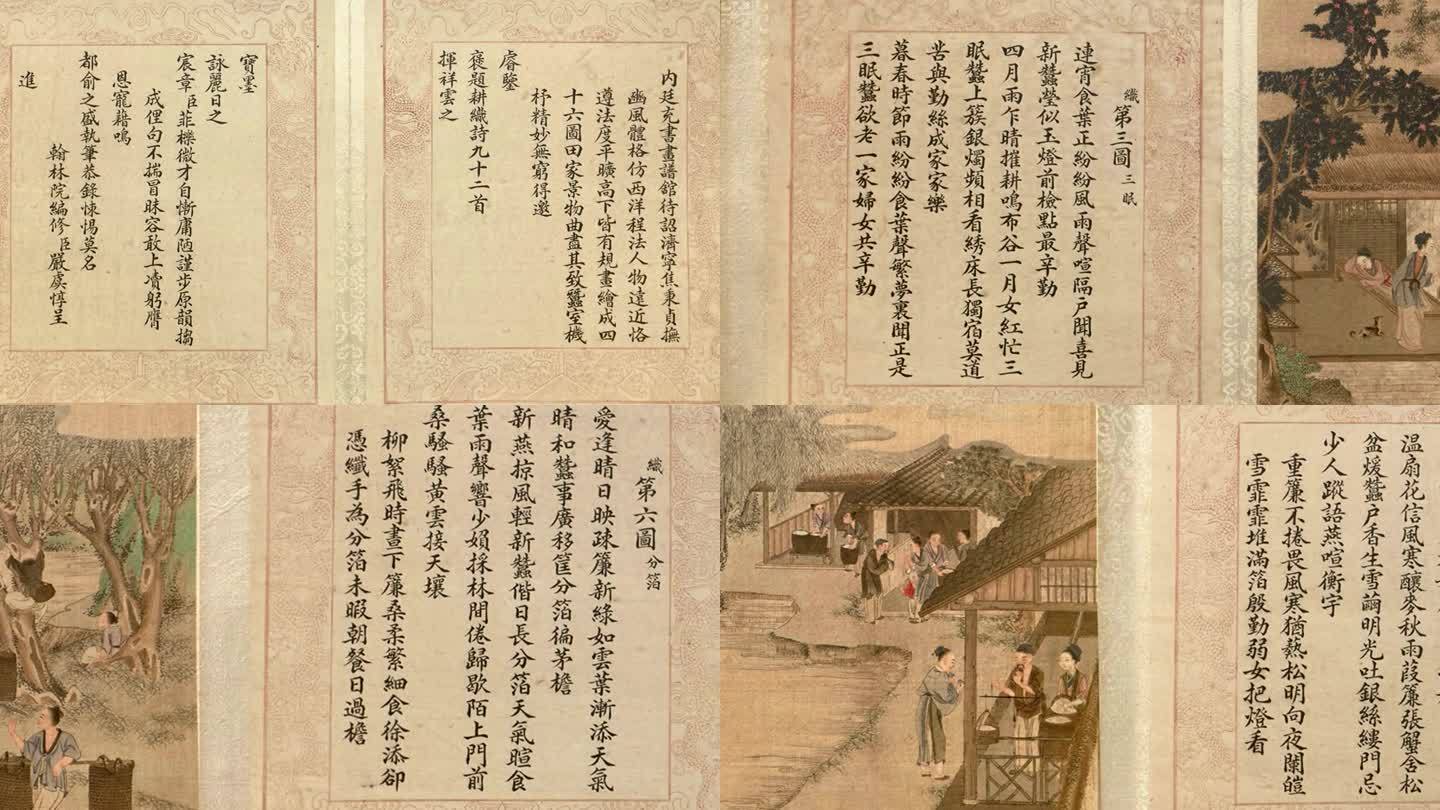 內廷充書畫譜館待詔濟寧焦秉貞撫
豳風體格仿西洋程法人物遠近恪
遵法度平曠高下皆有規畫繪成四
十六圖田家景物曲盡其致蠶室機
杼精妙無窮得邀
睿鑒
襃題耕織詩九十二首
揮祥雲之
寶墨
詠麗日之
宸章臣菲櫟微才自慚庸陋謹步原韻搊
成俚句不揣冒昧容敢上凟躬膺
恩寵藉鳴
都俞之盛執筆恭錄悚惕莫名
翰林院編修臣嚴虞惇呈
進
織 第三圖 三眠
連宵食葉正紛紛風雨聲喧隔戶聞喜見
新蠶瑩似玉燈前檢點最辛勤
四月雨乍晴摧耕鳴布谷一月女紅忙三
眠蠶上簇銀燭頻相看綉床長獨宿莫道
苦與勤絲成家家樂
暮春時節雨紛紛食葉聲繁夢裏聞正是
三眠蠶欲老一家婦女共辛勤
織 第六圖 分箔
愛逢晴日映疎簾新綠如雲葉漸添天氣
晴和蠶事廣移筐分箔徧茅檐
新燕掠風輕新蠶偕日長分箔天氣暄食
葉雨聲響少娟採林間倦歸歇陌上門前
桑騷騷黃雲接天壤
柳絮飛時晝下簾桑柔繁細食徐添卻
憑纖手為分箔未暇朝餐日過檐
溫扇花信風寒釀麥秋雨葭簾張蟹舍松
盆煖蠶戶香生雪繭明光吐銀絲縷門忌
少人蹤語燕喧衡宇
重簾不捲畏風寒猶爇松明向夜闌皚
雪霏霏堆滿箔殷勤弱女把燈看